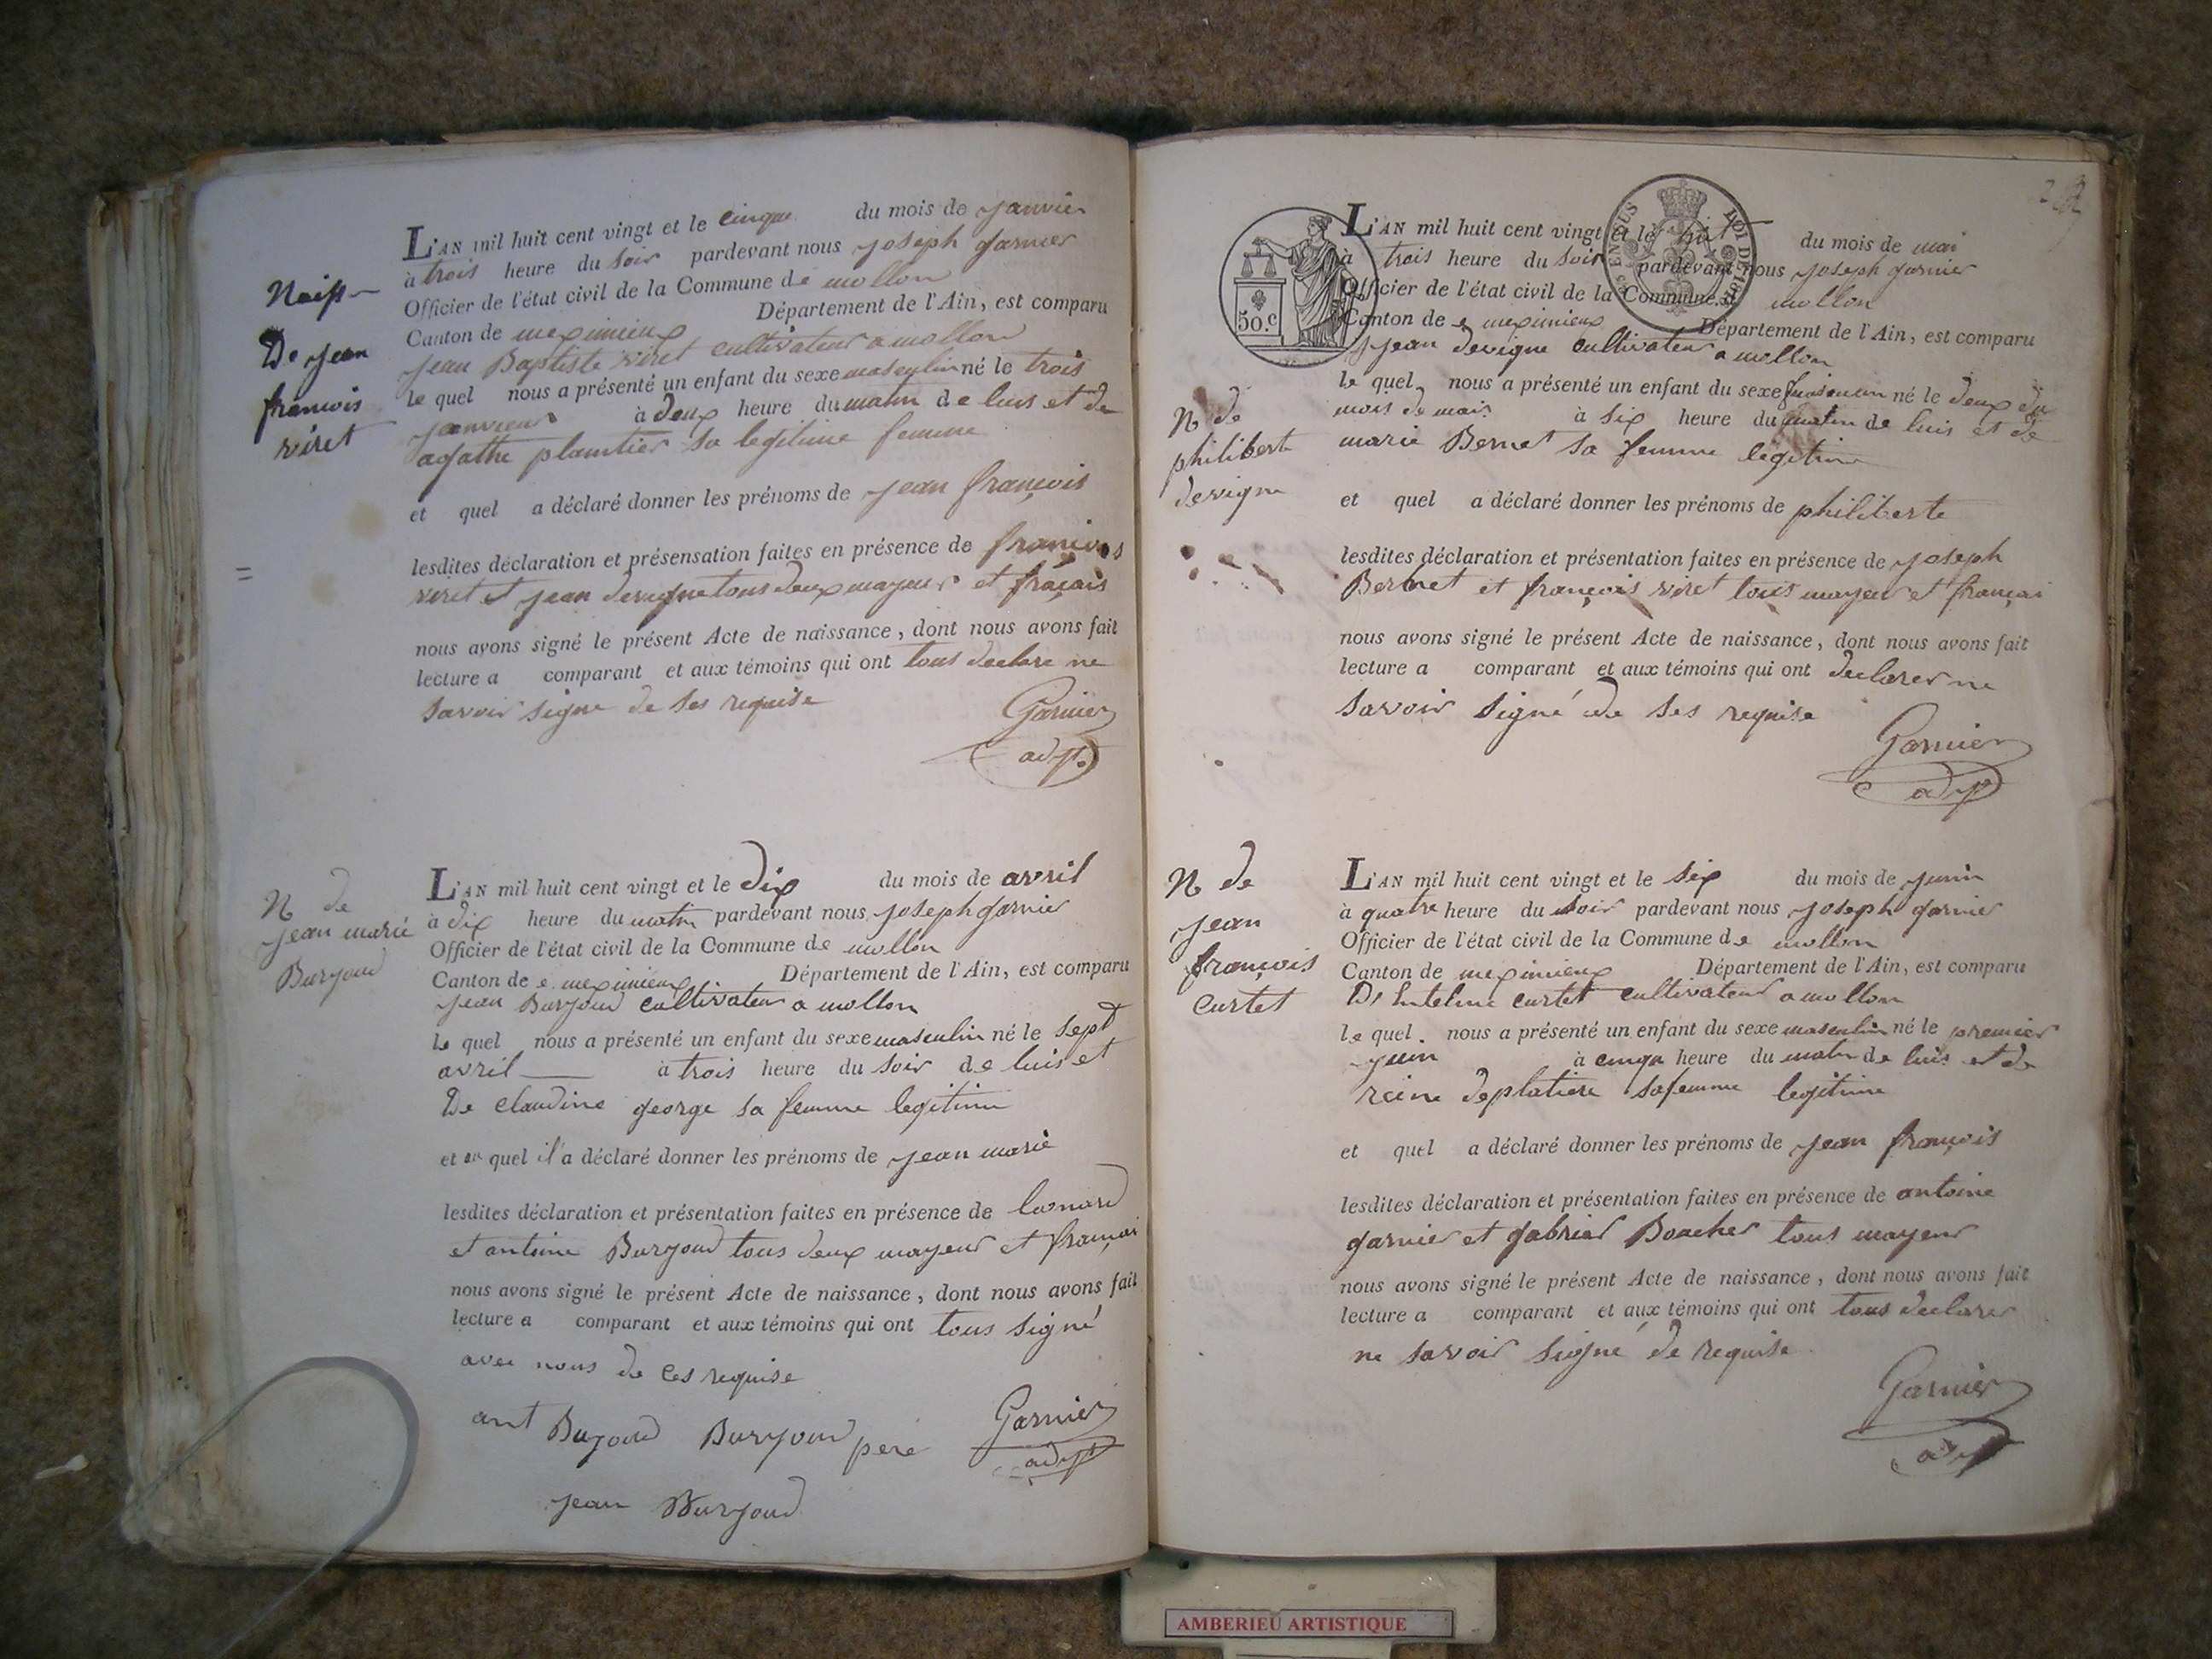 Naiss
De jean
francois
viret
L'AN mil huit cent vingt et le cinque du mois de janvier
à trois heure du soir pardevant nous joseph garnier
Officier de l'état civil de la Commune de mollon
Canton de meximieux Département de l'Ain, est comparu
jean Baptiste viret cultivateur a mollon
le quel nous a présenté un enfant du sexe masculin né le trois
janvier à deux heure du matin de luis et de
agathe plantier sa legitime femme
et quel a déclaré donner les prénoms de jean françois
lesdites déclaration et présensation faites en présence de françois
viret et jean devigne tous deux mayeur et fraçais
nous avons signé le présent Acte de naissance, dont nous avons fait
lecture a comparant et aux témoins qui ont tous declare ne
savoir signe de ses requise
Garnier
adjt
N de
jean marie
Burjoud
L'AN mil huit cent vingt et le dix du mois de avril
à dix heure du matin pardevant nous joseph garnier
Officier de l'état civil de la Commune de mollon
Canton de e meximieux Département de l'Ain, est comparu
jean Burjoud cultivateur a mollon
le quel nous a présenté un enfant du sexe masculin né le sept
avril à trois heure du soir de luis et
De claudine george sa femme legitime
et au quel il a déclaré donner les prénoms de jean marie
lesdites déclaration et présentation faites en présence de
et antoine Burjoud tous deux mayeur et françai
nous avons signé le présent Acte de naissance, dont nous avons fait
lecture a comparant et aux témoins qui ont tous signé
avec nous de ces requise
ant Bujoud Burjoud pere Garnier
adjt
jean Burjoud
50.c
LOI DE
N de
philiberte
devigne
L'AN mil huit cent vingt et le huit du mois de mai
à trois heure du soir pardevant nous joseph garnier
Officier de l'état civil de la Commune d mollon
Canton de e meximieux Département de l'Ain, est comparu
jean devigne cultivateur a mollon
le quel nous a présenté un enfant du sexe né le deux du
mois de mais à six heure du matin de luis et de
marie Bernet sa femme legitime
et quel a déclaré donner les prénoms de philiberte
lesdites déclaration et présentation faites en présence de joseph
Bernet et françois viret tous mayeur et françai
nous avons signé le présent Acte de naissance, dont nous avons fait
lecture a comparant et aux témoins qui ont declarer ne
savoir signé de ses requise
Garnier
adjt
N de
jean
françois
curtet
L'AN mil huit cent vingt et le six du mois de juin
à quatre heure du soir pardevant nous joseph garnier
Officier de l'état civil de la Commune de mollon
Canton de meximieux Département de l'Ain, est comparu
curtet cultivateur a mollon
le quel nous a présenté un enfant du sexe masculin né le premier
juin à cinqu heure du matin de luis et de
reine deplatiere sa femme legitime
et quel a déclaré donner les prénoms de jean françois
lesdites déclaration et présentation faites en présence de antoine
garnier et gabriel Boucher tous mayeur
nous avons signé le présent Acte de naissance, dont nous avons fait
lecture a comparant et aux témoins qui ont tous declarer
ne savoir signé de requise
Garnier
adjt
AMBERIEU ARTISTIQUE